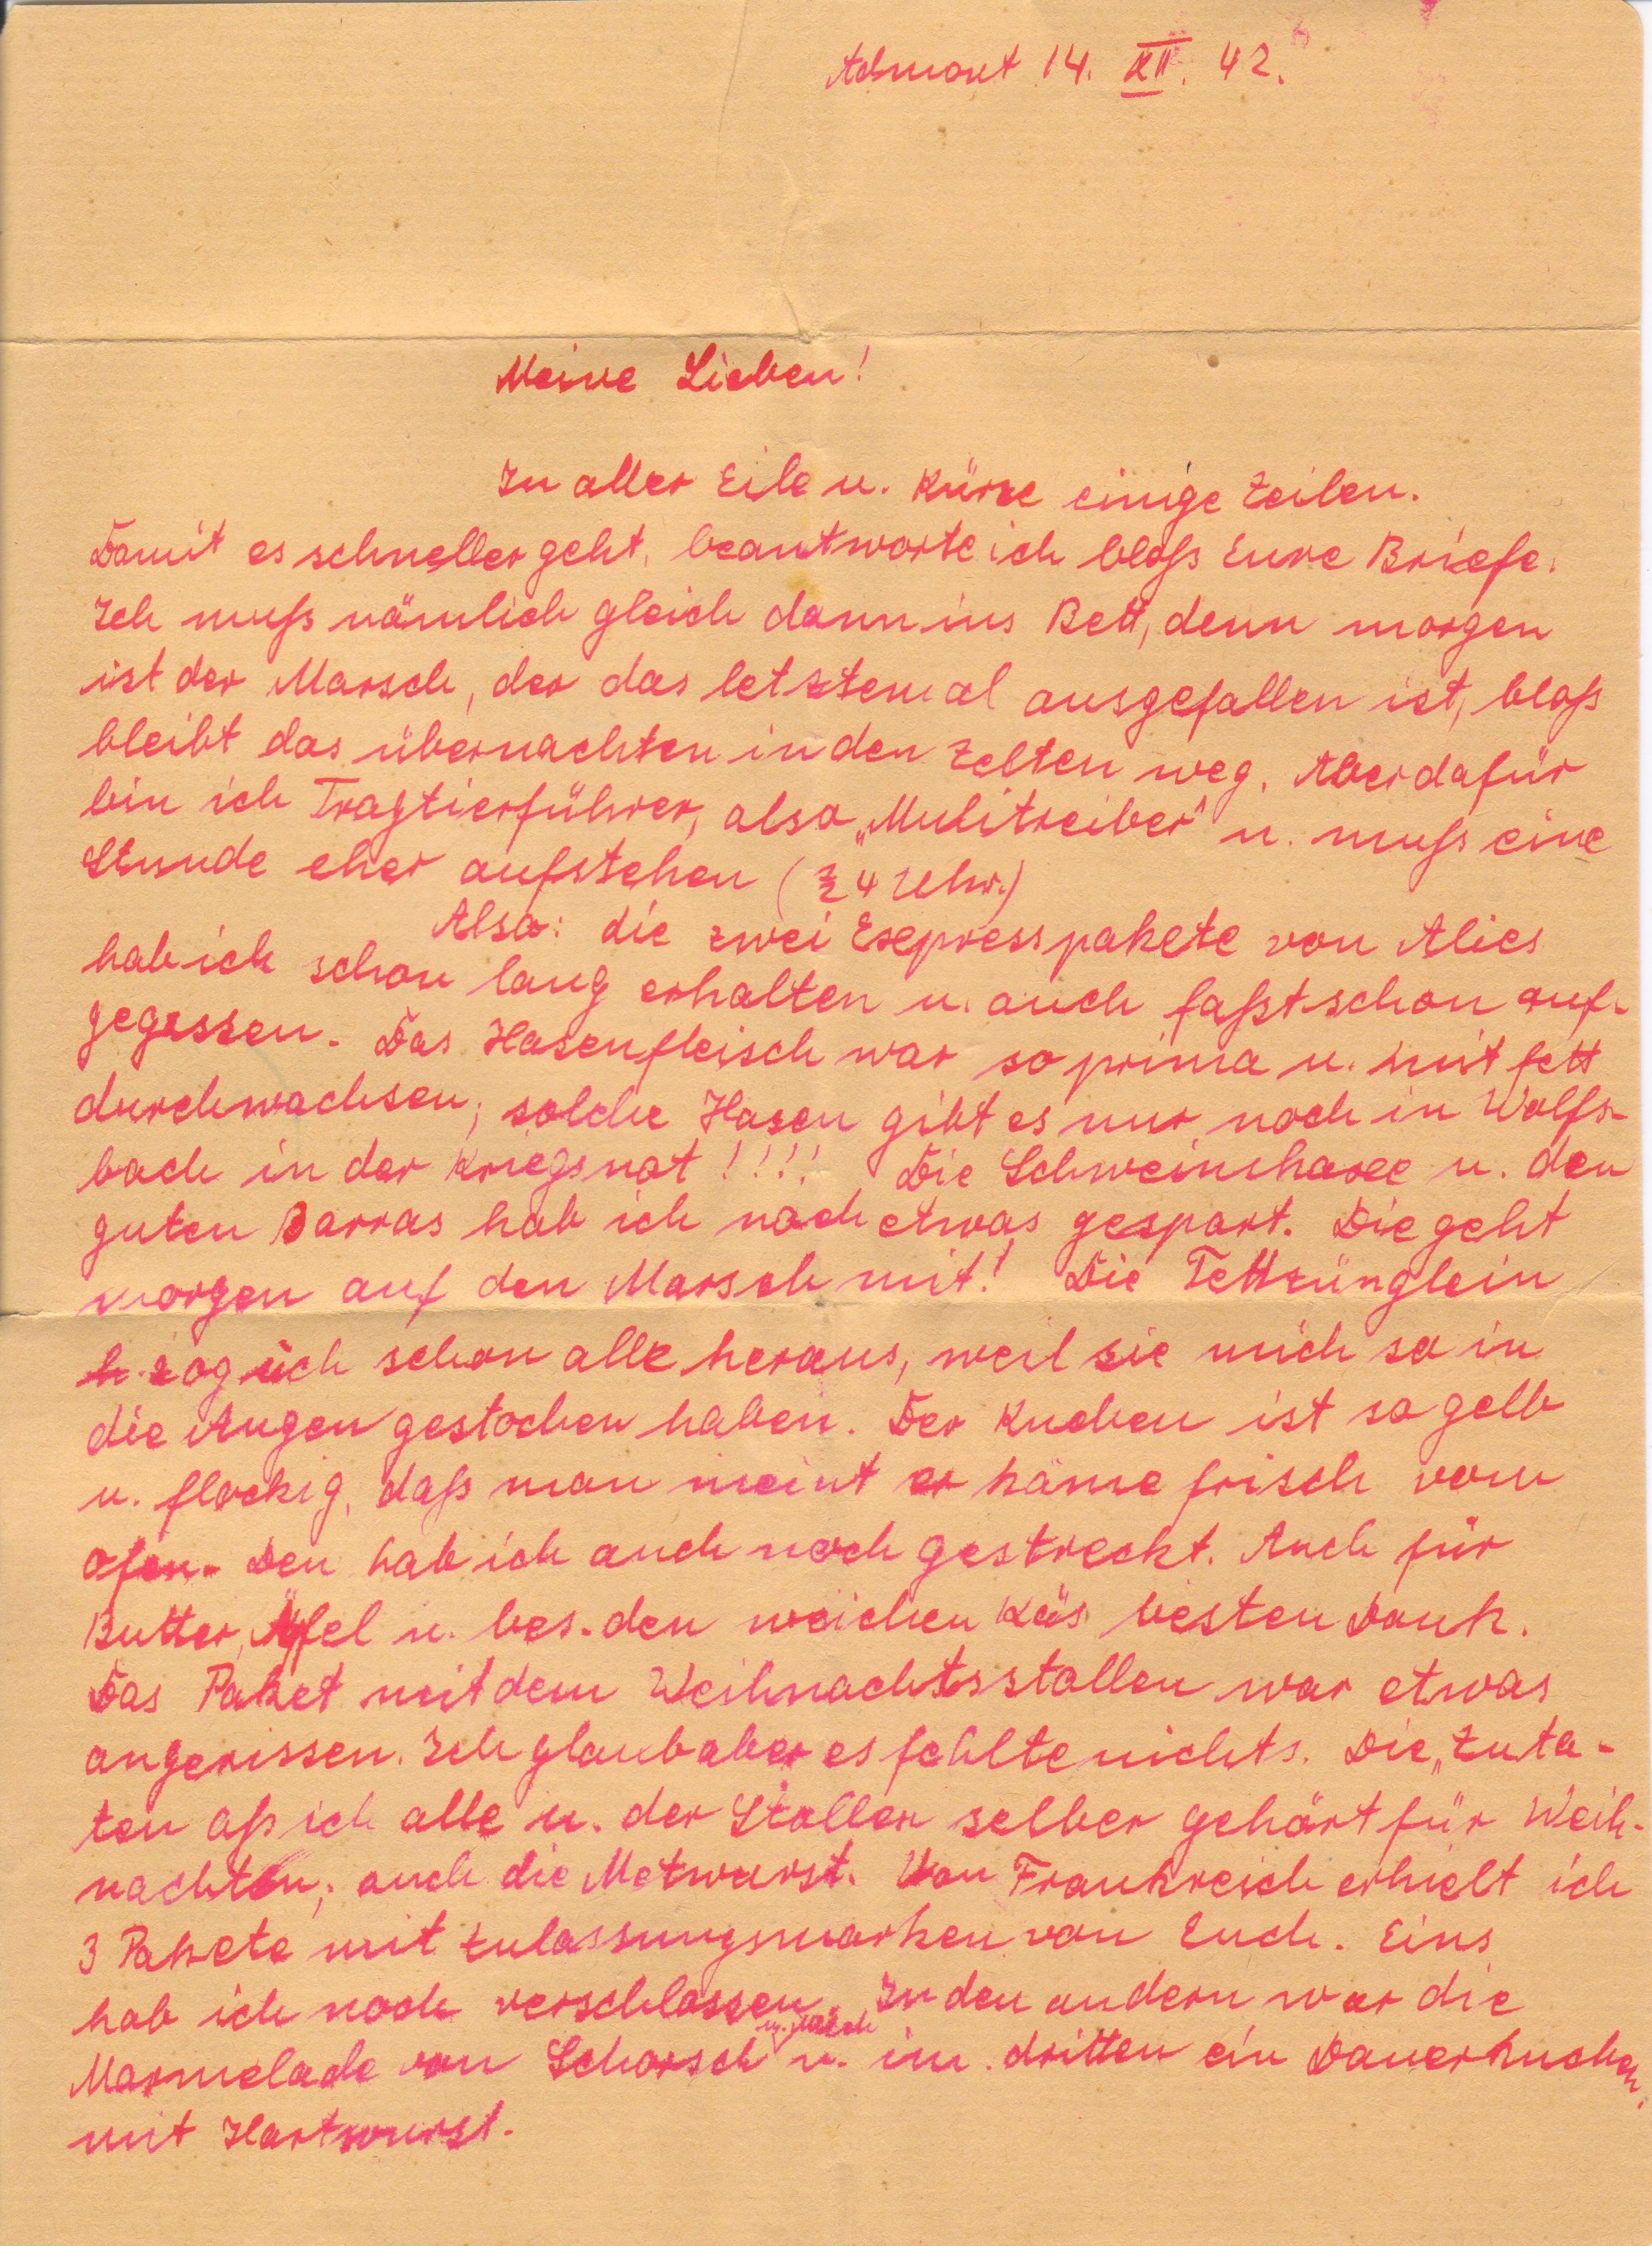 Admont 14. XII. 42.
Meine Lieben!
In aller Eile u. Kürze einige Zeilen.
Damit es schneller geht, beantworte ich bloß Eure Briefe.
Ich muß nämlich gleich dann ins Bett, denn morgen
ist der Marsch, der das letztemal ausgefallen ist, bloß
bleibt das übernachten in den Zelten weg. Aber dafür
bin ich Tragtierführer, also „Mulitreiber“ u. muß eine
Stunde eher aufstehen (½ 4 Uhr.)
Also: die zwei Expresspakete von Alies
hab ich schon lang erhalten u. auch faßt schon auf-
gegessen. Das Hasenfleisch war so prima u. mit fett
durchwachsen, solche Hasen gibt es nur noch in Wolfs-
bach in der Kriegsnot!!!! Die u. den
guten Barras hab ich noch etwas gespart. Die geht
morgen auf den Marsch mit! Die Fettzünglein
zog ich schon alle heraus, weil sie mich so in
die Augen gestochen haben. Der Kuchen ist so gelb
u. flockig, daß man meint er käme frisch vom
Ofen. Den hab ich auch noch gestreckt. Auch für
Butter, Äpfel u. bes. den weichen Käs besten Dank.
Das Paket mit dem Weihnachtsstollen war etwas
angerissen. Ich glaub aber es fehlte nichts. Die „Zuta-
ten aß ich alle u. der Stollen selber gehört für Weih-
nachten, auch die Metwurst. Von Frankreich erhielt ich
3 Pakete mit Zulassungsmarken von Euch. Eins
hab ich noch verschlossen. In den andern war die
Marmelade von Schorsch u. im dritten ein Dauerkuchen,
mit Hartwurst.